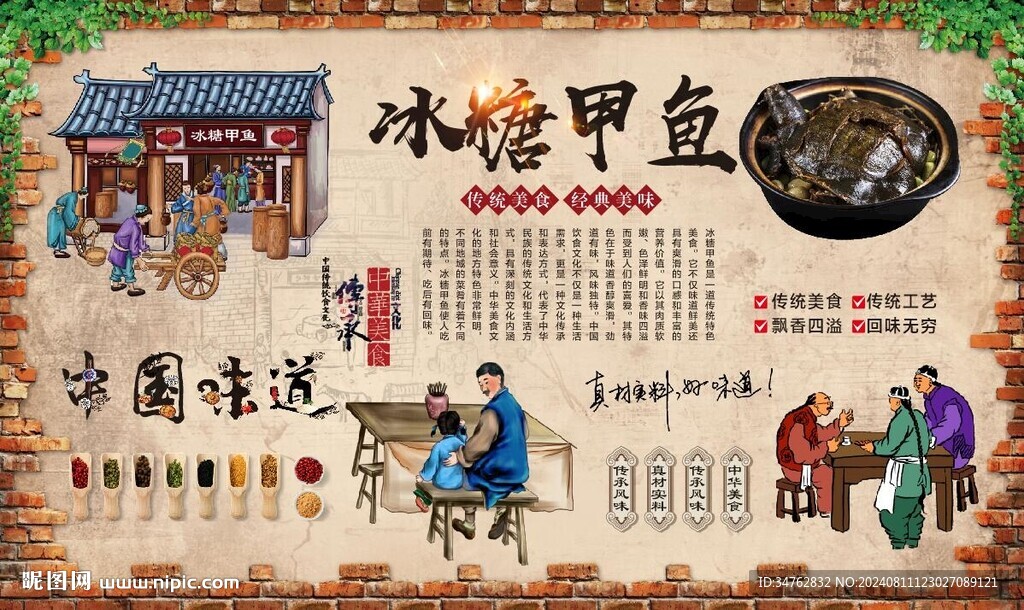 冰糖甲鱼
冰糖甲鱼
传统美食 经典美味
冰糖甲鱼是一道传统特色
美食。它不仅味道鲜美还
具有爽滑的口感和丰富的
营养价值。它以其肉质软
嫩、色泽鲜明和香味四溢
而受到人们的喜爱。其特
色在于味道香醇爽滑，劲
道有味，风味独特。中国
饮食文化不仅是一种生活
需求，更是一种文化传承
和表达方式，代表了中华
民族的传统文化和生活方
式，具有深刻的文化内涵
和社会意义。中华美食文
化的地方特色非常鲜明，
不同地域的菜肴有着不同
的特点。冰糖甲鱼使人吃
前有期待、吃后有回味。
文化
中華美食
傳承
中国传统饮食文化
传统美食 传统工艺
飘香四溢 回味无穷
中国味道
真材实料,好味道!
中华美食
传承风味
真材实料
传承风味
昵图网 www.nipic.com
ID:34762832 NO:20240811123027089121